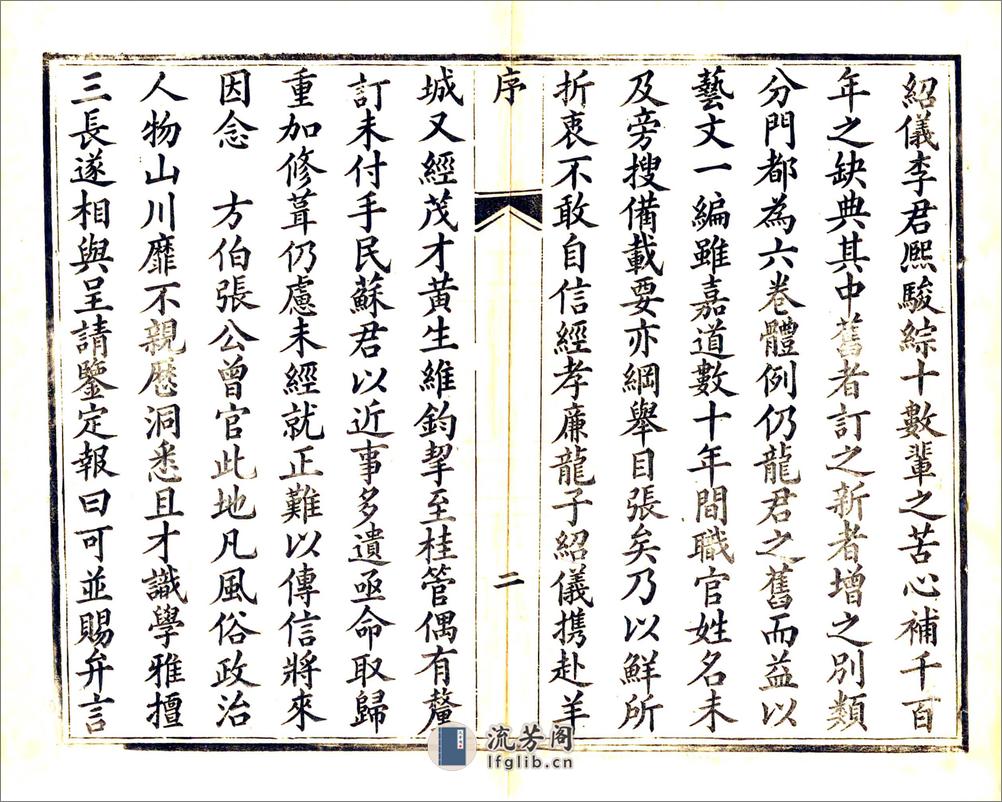 紹儀李君熙駿綜十數輩之苦心補千百
年之缺典其中舊者訂之新者增之別類
分門都為六卷體例仍龍君之舊而益以
藝文一編雖嘉道數十年間職官姓名未
及旁搜備載要亦綱舉目張矣乃以鮮所
折衷不敢自信經孝廉龍子紹儀携赴羊
序
二
城又經茂才黃生維鈞挈至桂管偶有釐
訂未付手民蘇君以近事多遺亟命取歸
重加修葺仍慮未經就正難以傳信將來
因念 方伯張公曾官此地凡風俗政治
人物山川靡不親歷洞悉且才識學雅擅
三長遂相與呈請鑒定報曰可並賜弁言
流芳阁
lfglib.cn